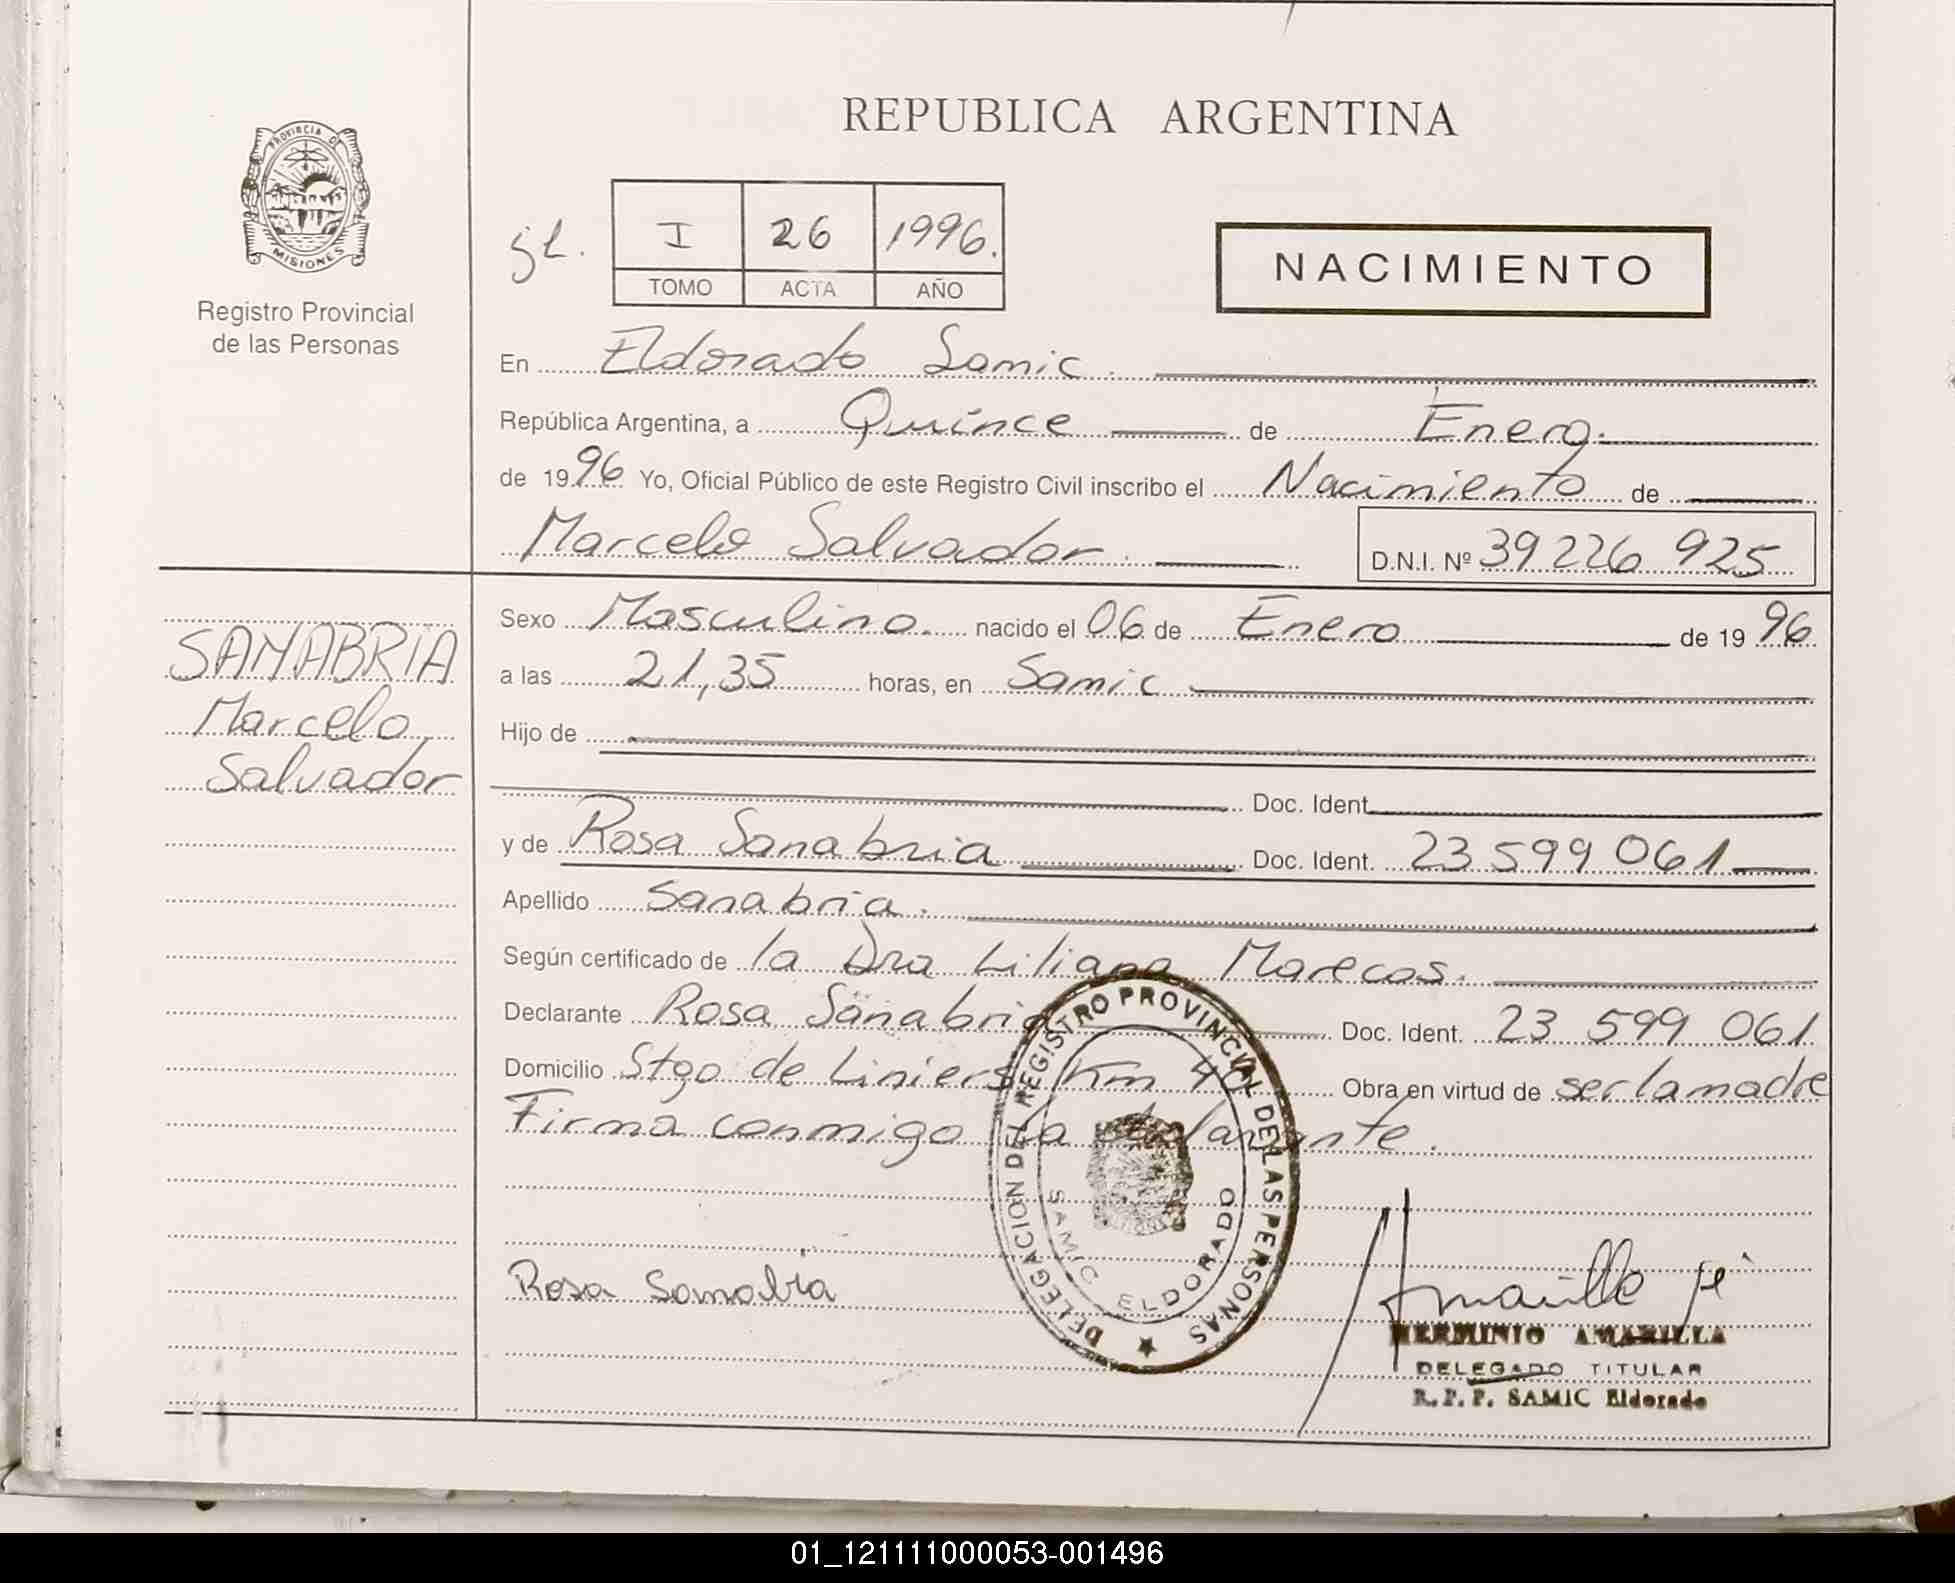 REPUBLICA ARGENTINA
PROVINCIA DE
MISIONES
Registro Provincial
de las Personas
I 26 1996.
TOMO ACTA AÑO
NACIMIENTO
En Eldorado Samic.
República Argentina, a Quince de Enero.
de 1996 Yo, Oficial Público de este Registro Civil inscribo el Nacimiento de
Marcelo Salvador. D.N.I. Nº 39 226 925
SANABRIA
Marcelo
Salvador
Sexo Masculino. nacido el 06 de Enero de 1996
a las 21,35 horas, en Samic
Hijo de
Doc. Ident.
y de Rosa Sanabria Doc. Ident. 23 599 061
Apellido Sanabria.
Según certificado de la Dra Liliana Marecos.
Declarante Rosa Sanabria Doc. Ident. 23 599 061
Domicilio Stgo de Liniers Km 40 Obra en virtud de ser la madre
Firma conmigo la declarante.
DELEGACION DEL REGISTRO PROVINCIAL DE LAS PERSONAS
SAMIC ELDORADO
Rosa Sanabria
HERMINIO AMARILLA
DELEGADO TITULAR
R.P.P. SAMIC Eldorado
01_121111000053-001496